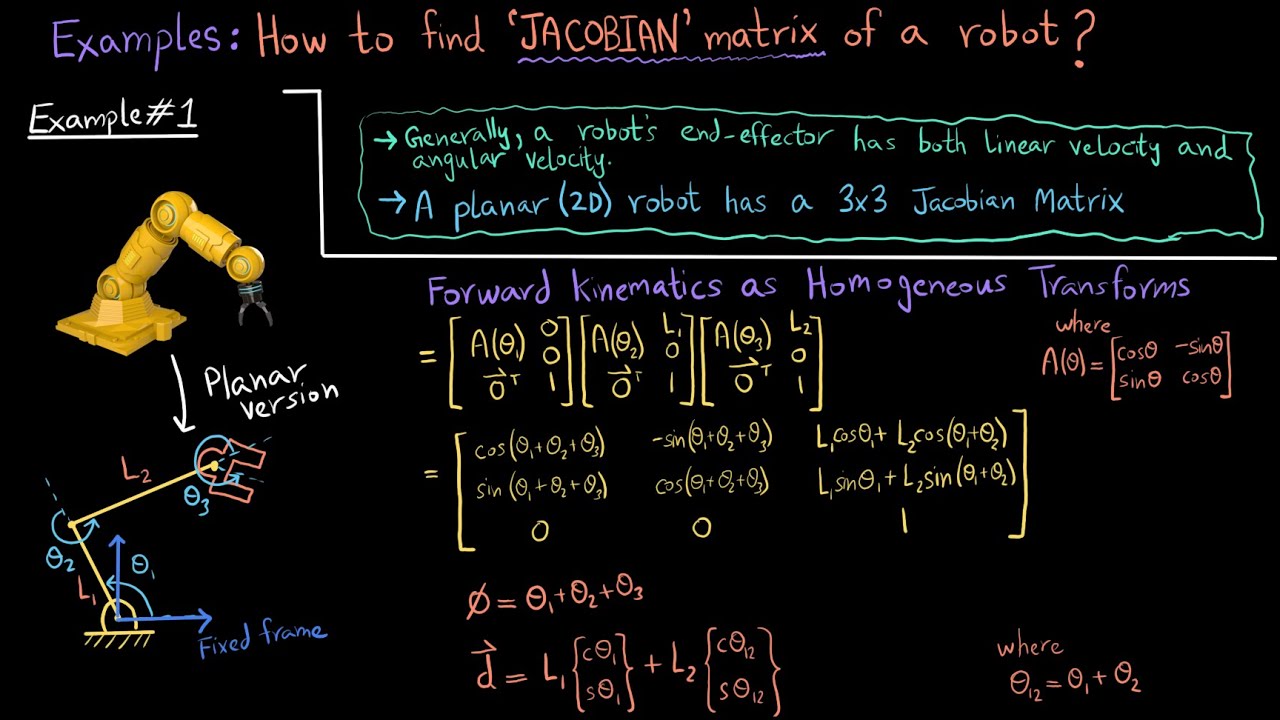 Examples: How to find 'JACOBIAN' matrix of a robot?
Example#1
→ Generally, a robot's end-effector has both linear velocity and
angular velocity.
→ A planar (2D) robot has a 3x3 Jacobian Matrix
Planar
version
L₂
θ₃
θ₂
θ₁
L₁
Fixed frame
Forward Kinematics as Homogeneous Transforms
= [A(θ₁) 0] [A(θ₂) L₁] [A(θ₃) L₂]
0 0 0
0⃗ᵀ 1 0⃗ᵀ 1 0⃗ᵀ 1
where
A(θ) = [cosθ -sinθ]
[sinθ cosθ]
= [cos(θ₁+θ₂+θ₃) -sin(θ₁+θ₂+θ₃) L₁cosθ₁+ L₂cos(θ₁+θ₂)]
[sin(θ₁+θ₂+θ₃) cos(θ₁+θ₂+θ₃) L₁sinθ₁+L₂sin(θ₁+θ₂)]
[0 0 1]
Ø = θ₁+θ₂+θ₃
d⃗ = L₁ {cθ₁} + L₂ {cθ₁₂}
{sθ₁} {sθ₁₂}
where
θ₁₂=θ₁+θ₂